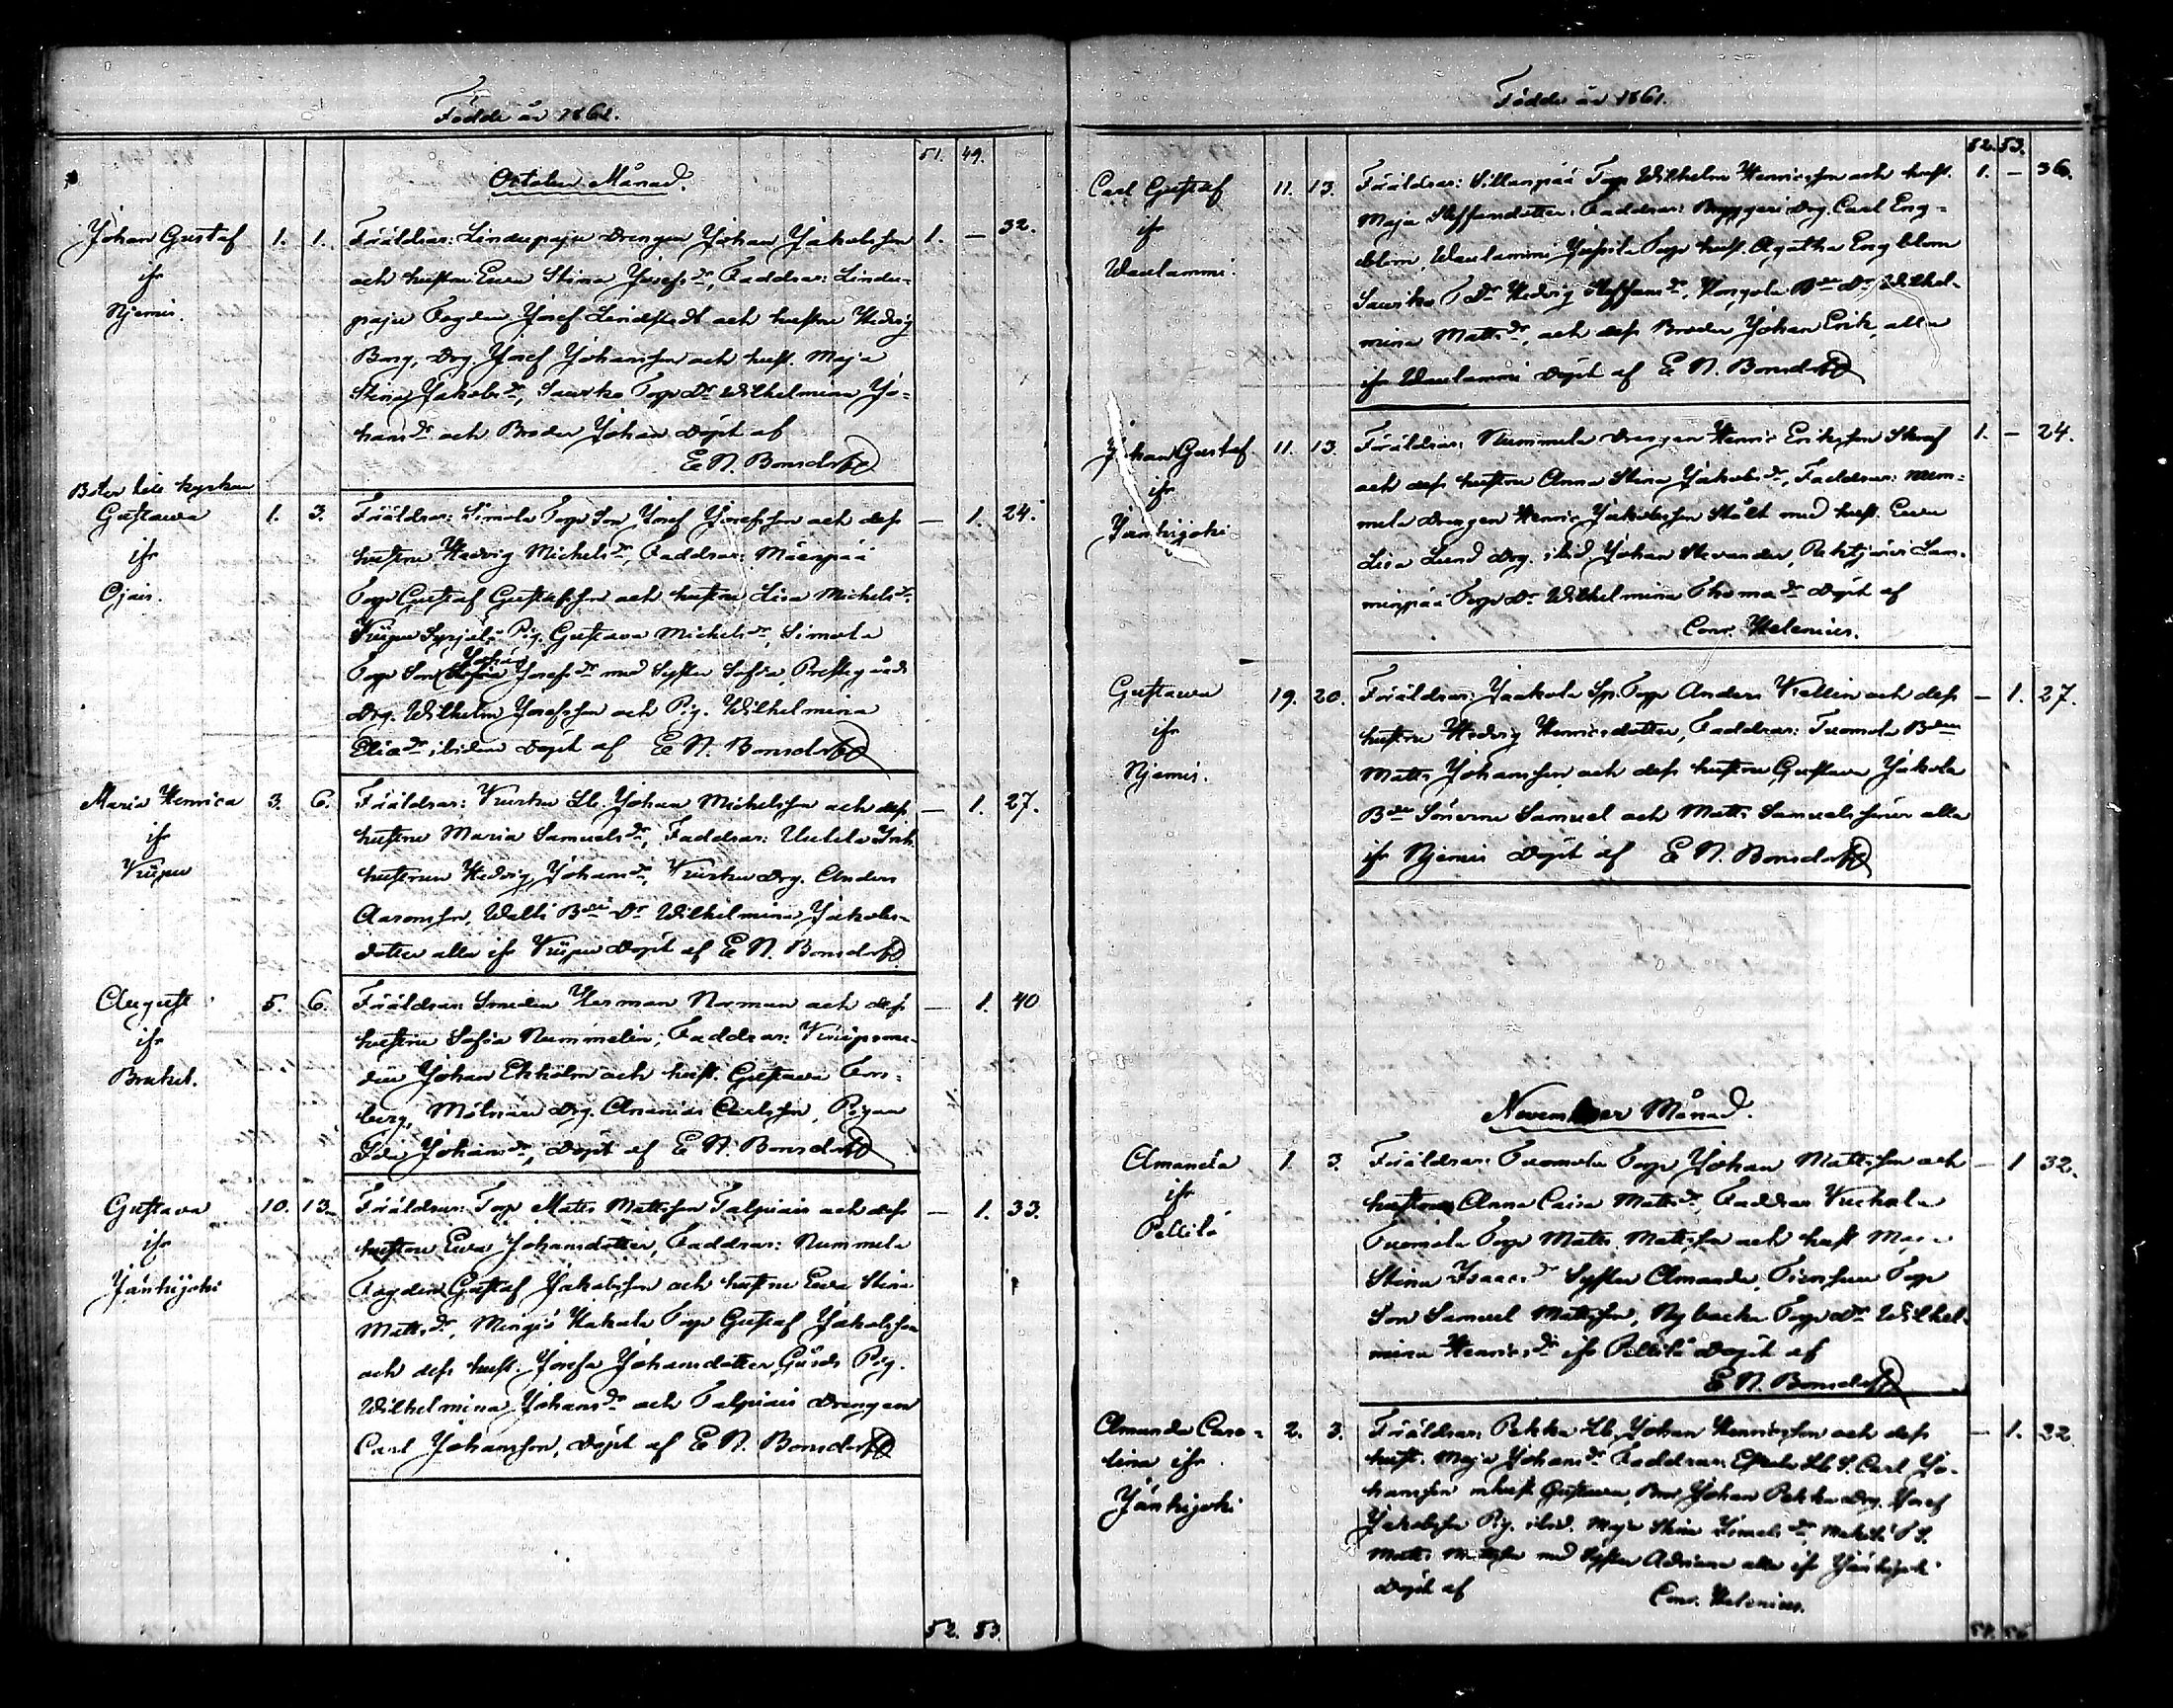 Födde år 1861.
51. 49.
October Månad.
Johan Gustaf 1. 1. Föräldrar: Lindupaju Drengen Johan Jakobsson 1. — 32.
ifr och hustru Eva Stina Josefsdr, Faddrar: Lindu-
Njemis. paju Fogden Josef Lindstedt och hustru Hedvig
Borg, Drg. Josef Johansson och hust. Maja
Stina Jakobsdr, Sawiko Torp Dr Wilhelmina Jo-
hansdr och Broder Johan Döpt af
E. N. Bonsdorff
Böter till kyrkan
Gustawa 1. 3. Föräldrar: Simola Torp Son Josef Josefsson och dess — 1. 24.
ifr hustru Hedvig Michelsdr, Faddrar: Mäenpää
Ojais. Torp Gustaf Gustafsson och hustru Lisa Michelsdr
Wiipu Syrjälä Pig. Gustava Michelsdr, Simola
Johan
Torp Son Josefsdr med Syster Sofia, Prestegårds
Drg. Wilhelm Josefsson och Pig. Wilhelmina
Eliaedr, ibidem Döpt af E. N. Bonsdorff
Maria Henrica 3. 6. Föräldrar: Johan Michelsson och dess — 1. 27.
ifr hustru Maria Samuelsdr, Faddrar: Uutela Inh.
Wiipu hustrun Hedvig Johansdr, Drg. Anders
Aaronson, Walli Bdei Dr Wilhelmina Jakobs-
dotter alla ifr Wiipu Döpt af E. N. Bonsdorff
August 5. 6. Föräldrar: Smeden Herman Norman och dess — 1. 40
ifr hustru Sofia Nummelin, Faddrar:
Brukel. den Johan Ekholm och hust. Gustava Fors-
berg, Mölnare Drg. Ananias Carlsson, Pigan
Ida Johansdr, Döpt af E. N. Bonsdorff
Gustava 10. 13. Föräldrar: Torp Matts Mattsson Talpiais och dess — 1. 33.
ifr hustru Eva Johansdotter, Faddrar: Nummela
Jänhijoki Fogden Gustaf Jakobsson och hustru Eva Stina
Mattsdr, Hakala Torp Gustaf Jakobsson
och dess hust. Josefa Johansdotter, Gårds Pig.
Wilhelmina Johansdr och Talpiais Drengen
Carl Johansson, Döpt af E. N. Bonsdorff
52. 53.
Födde år 1861.
52. 53.
Carl Gustaf 11. 13. Föräldrar: Villanpää Torp Wilhelm Henricsson och hust. 1. — 36.
ifr Maja Steffansdotter: Faddrar: Bryggeri Drg. Carl Eng-
Waulammi. blom, Waulammi Torp hust. Agatha Engblom
Sawiko T. Dr Hedvig Steffansdr, Bdei Dr Wilhel-
mina Mattsdr, och dess Broder Johan Erik, alla
ifr Waulammi Döpt af E. N. Bonsdorff
Johan Gustaf 11. 13. Föräldrar: Nummela Drengen Henric Eriksson 1. — 24.
ifr och dess hustru Anna Stina Jakobsdr, Faddrar: Num-
Jänhijoki mela Drengen Henric Jakobsson Stålt med hust. Eva
Lisa Lund Drg. ibid. Johan Lam-
minpää Torp Dr Wilhelmina Thomaedr Döpt af
Conr. Helenius.
Gustawa 19. 20. Föräldrar: Jaakola Sp. Torp Anders Wallin och dess — 1. 27.
ifr hustru Hedvig Henricsdotter, Faddrar: Tuomola Bden
Njemis. Matts Johansson och dess hustru Gustava Jakola
Bdei Sönerna Samuel och Matts Samuelssöner alla
ifr Njemis Döpt af E. N. Bonsdorff
November Månad.
Amanda 1. 3. Föräldrar: Tuomola Torp Johan Mattsson och — 1 32.
ifr hustrun Anna Caisa Mattsdr, Faddrar
Pellilä Tuomola Torp Matts Mattsson och hust Maja
Stina Isaacsdr Syster Amanda, Torp
Son Samuel Mattsson, Nybacka Torp Dr Wilhel-
mina Henricsdr ifr Pellilä Döpt af
E. N. Bonsdorff
Amanda Caro- 2. 3. Föräldrar: Pekka Johan Henricsson och dess — 1. 22.
lina ifr hust. Maja Johansdr Faddrar: Carl Jo-
Jänhijoki hansson m hust Gustava, Bror Johan Pekka Drg. Josef
Jakobsson Pig. ibid. Maja Stina
Matts Mattsson med Syster Adriana alla ifr Jänhijoki
Döpt af Conr. Helenius.